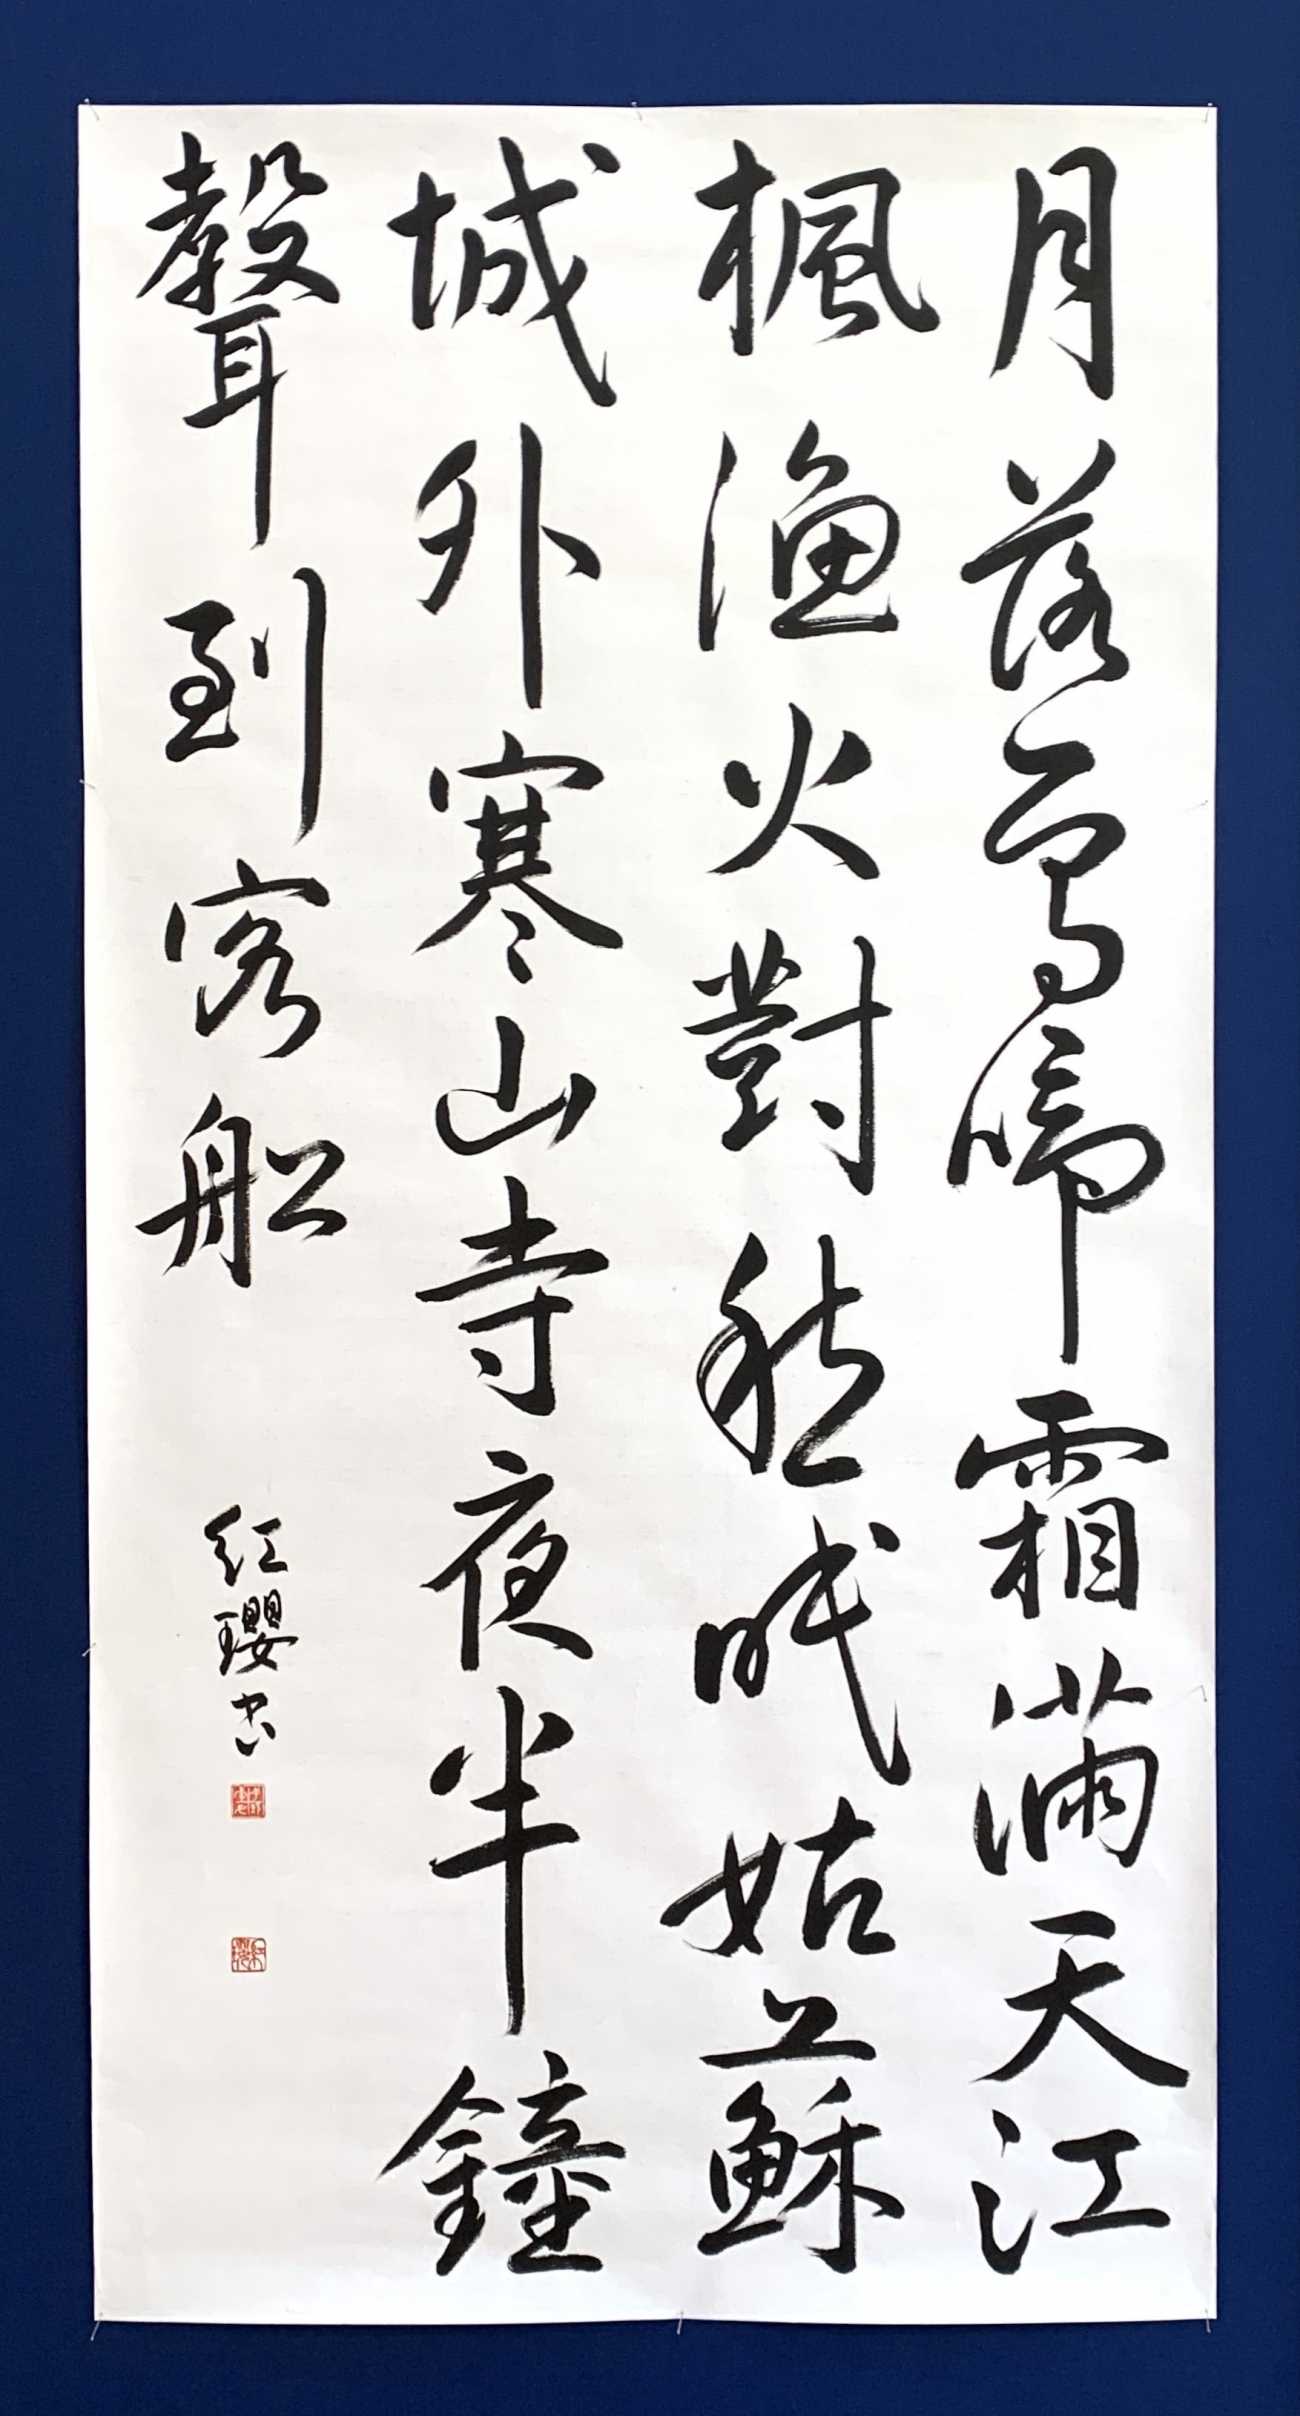 月落烏啼霜滿天江
楓漁火對愁眠姑蘇
城外寒山寺夜半鐘
聲到客船
紅瓔书